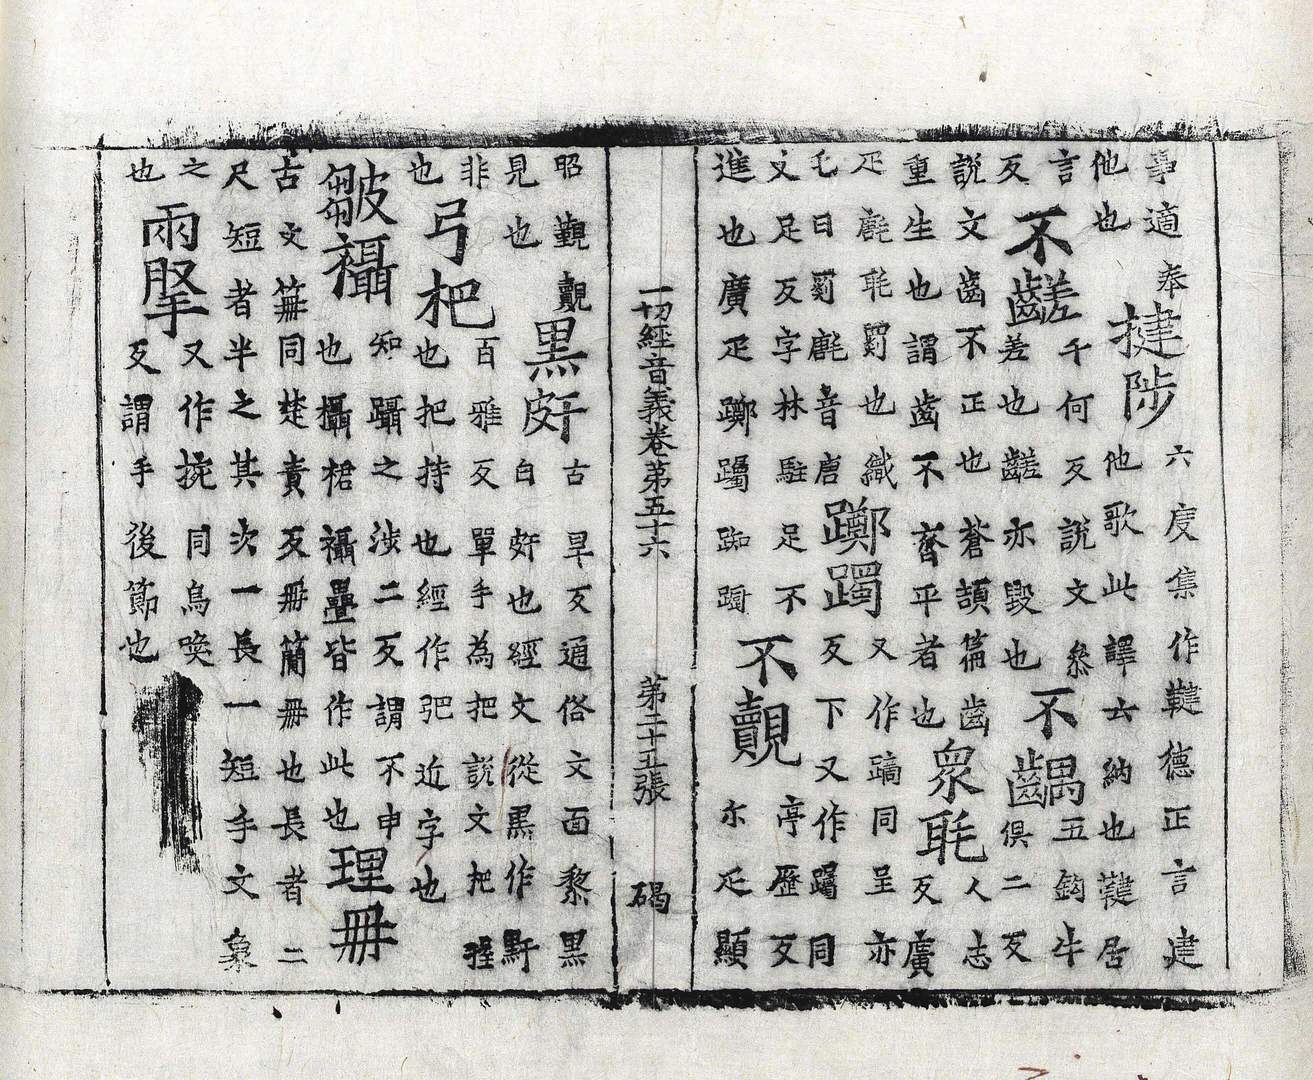 事適奉他也捷陟六度集作鞬德正言建他歌此譯云納也鞬居
言反不齹千何反說文叅差也齹亦毀也不齵五鈎牛俱二反
說文齒不正也蒼頡篇齒重生也謂齒不齊平者也衆毦人志反廣
疋氀毦罽也織毛曰罽氀音唐躑躅又作蹢同呈亦反下又作躅同
丈足反字林駐足不進也廣疋躑躅踟躕不覿亭歷反尓疋顯
一切經音義卷第五十六 第二十五張 碣
昭覲覿見也黑皯古旱反通俗文面黎黑白皯也經文從黑作䵟
非也弓杷百雅反單手為把說文把握也把持也經作弝近字也
皺襵知躡之涉二反謂不申也攝桾襵疊皆作此也理冊
古文笧同楚責反冊簡冊也長者二尺短者半之其次一長一短手文象
之也兩掔又作捥同烏喚反謂手後節也